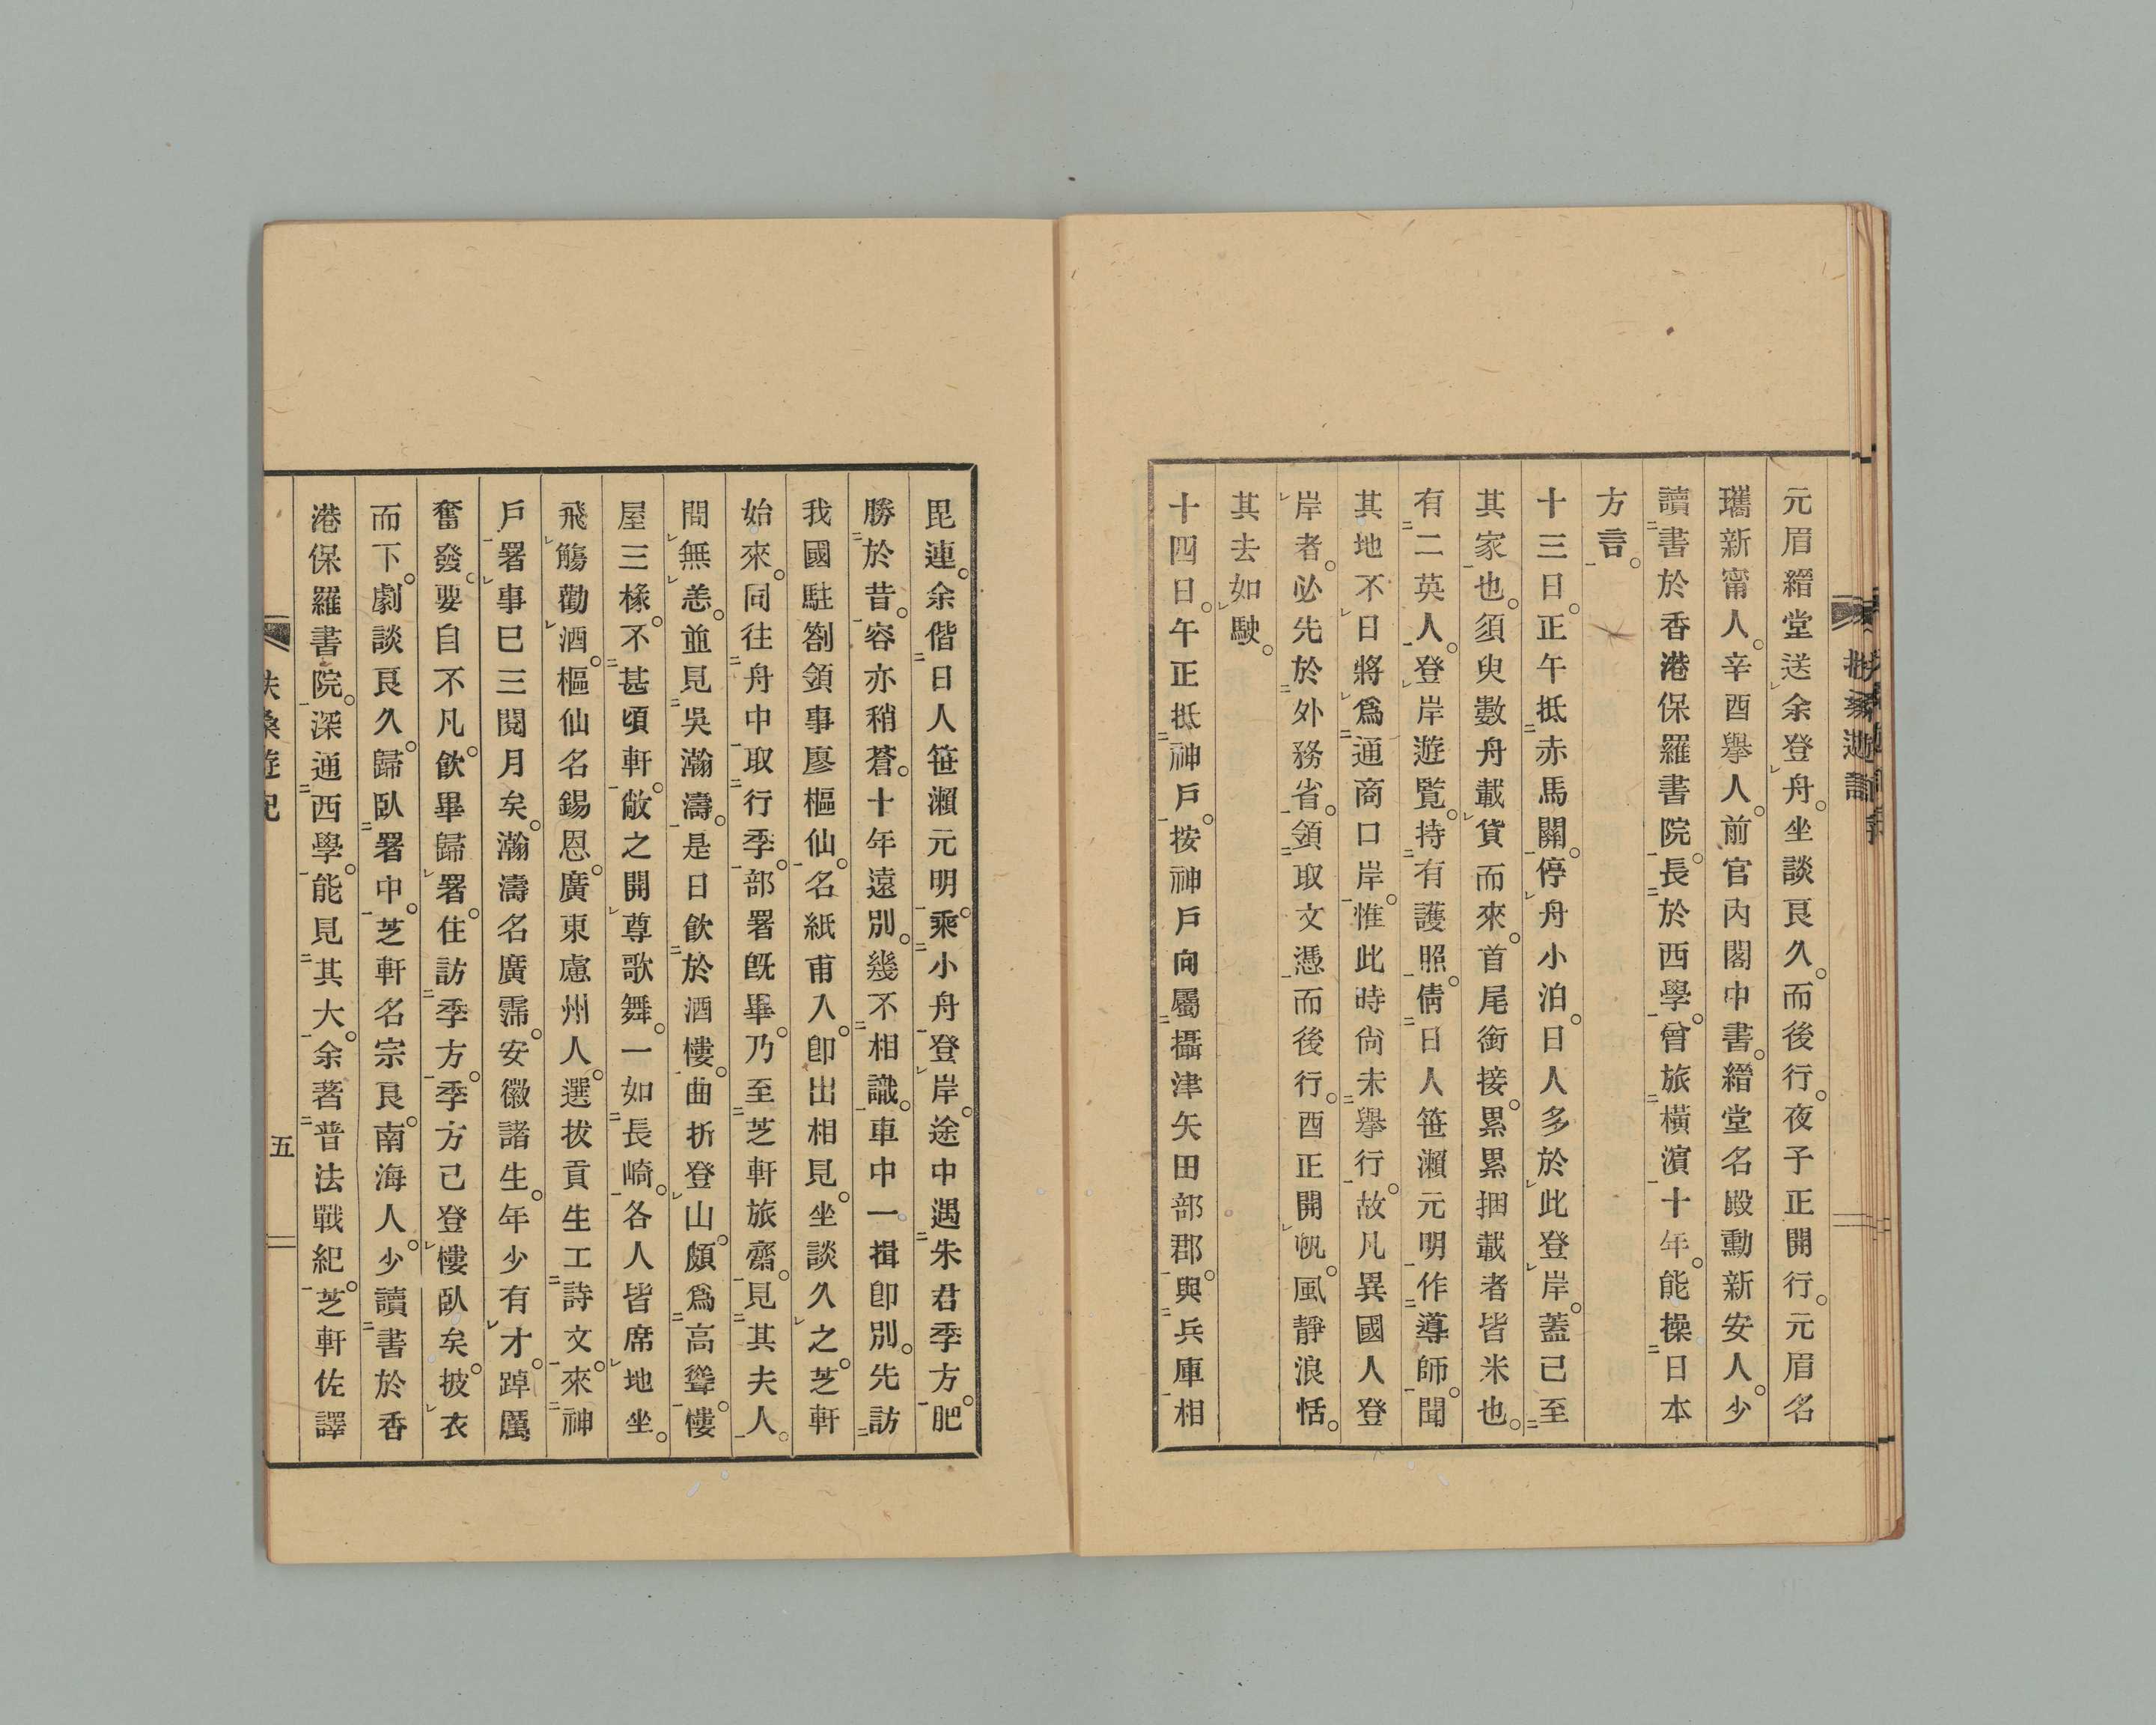 元眉縉堂送余登舟。坐談良久。而後行。夜子正開行。元眉名
瓗新甯人。辛酉擧人。前官內閣中書。縉堂名殿勳新安人。少
讀書於香港保羅書院。長於西學。曾旅橫濵十年。能操日本
方言。
十三日。正午抵赤馬關。停舟小泊。日人多於此登岸。蓋已至
其家也。須臾數舟載貨而來。首尾銜接。累累捆載者皆米也。
有二英人。登岸遊覽。持有護照。倩日人笹瀨元明作導師。聞
其地不日將爲通商口岸。惟此時尙未擧行。故凡異國人登
岸者。必先於外務省。領取文憑而後行。酉正開帆。風靜浪恬。
其去如駛。
十四日。午正抵神戶。按神戶向屬攝津矢田部郡。與兵庫相
毘連。余偕日人笹瀨元明。乘小舟登岸。途中遇朱君季方。肥
勝於昔。容亦稍蒼。十年遠別。幾不相識。車中一揖卽別。先訪
我國駐劄領事廖樞仙。名紙甫入。卽出相見。坐談久之。芝軒
始來。同往舟中取行季。部署旣畢。乃至芝軒旅齋。見其夫人。
間無恙。並見吳瀚濤。是日飮於酒樓。曲折登山。頗爲高聳。樓
屋三椽。不甚頃軒。敞之開尊歌舞。一如長崎。各人皆席地坐。
飛觴勸酒。樞仙名錫恩。廣東慮州人。選拔貢生工詩文。來神
戶署事已三閱月矣。瀚濤名廣霈。安徽諸生。年少有才。踔厲
奮發。要自不凡。飮畢歸署。住訪季方。季方已登樓臥矣。披衣
而下。劇談良久。歸臥署中。芝軒名宗良。南海人。少讀書於香
港保羅書院。深通西學。能見其大。余著普法戰紀。芝軒佐譯
扶桑遊記
五